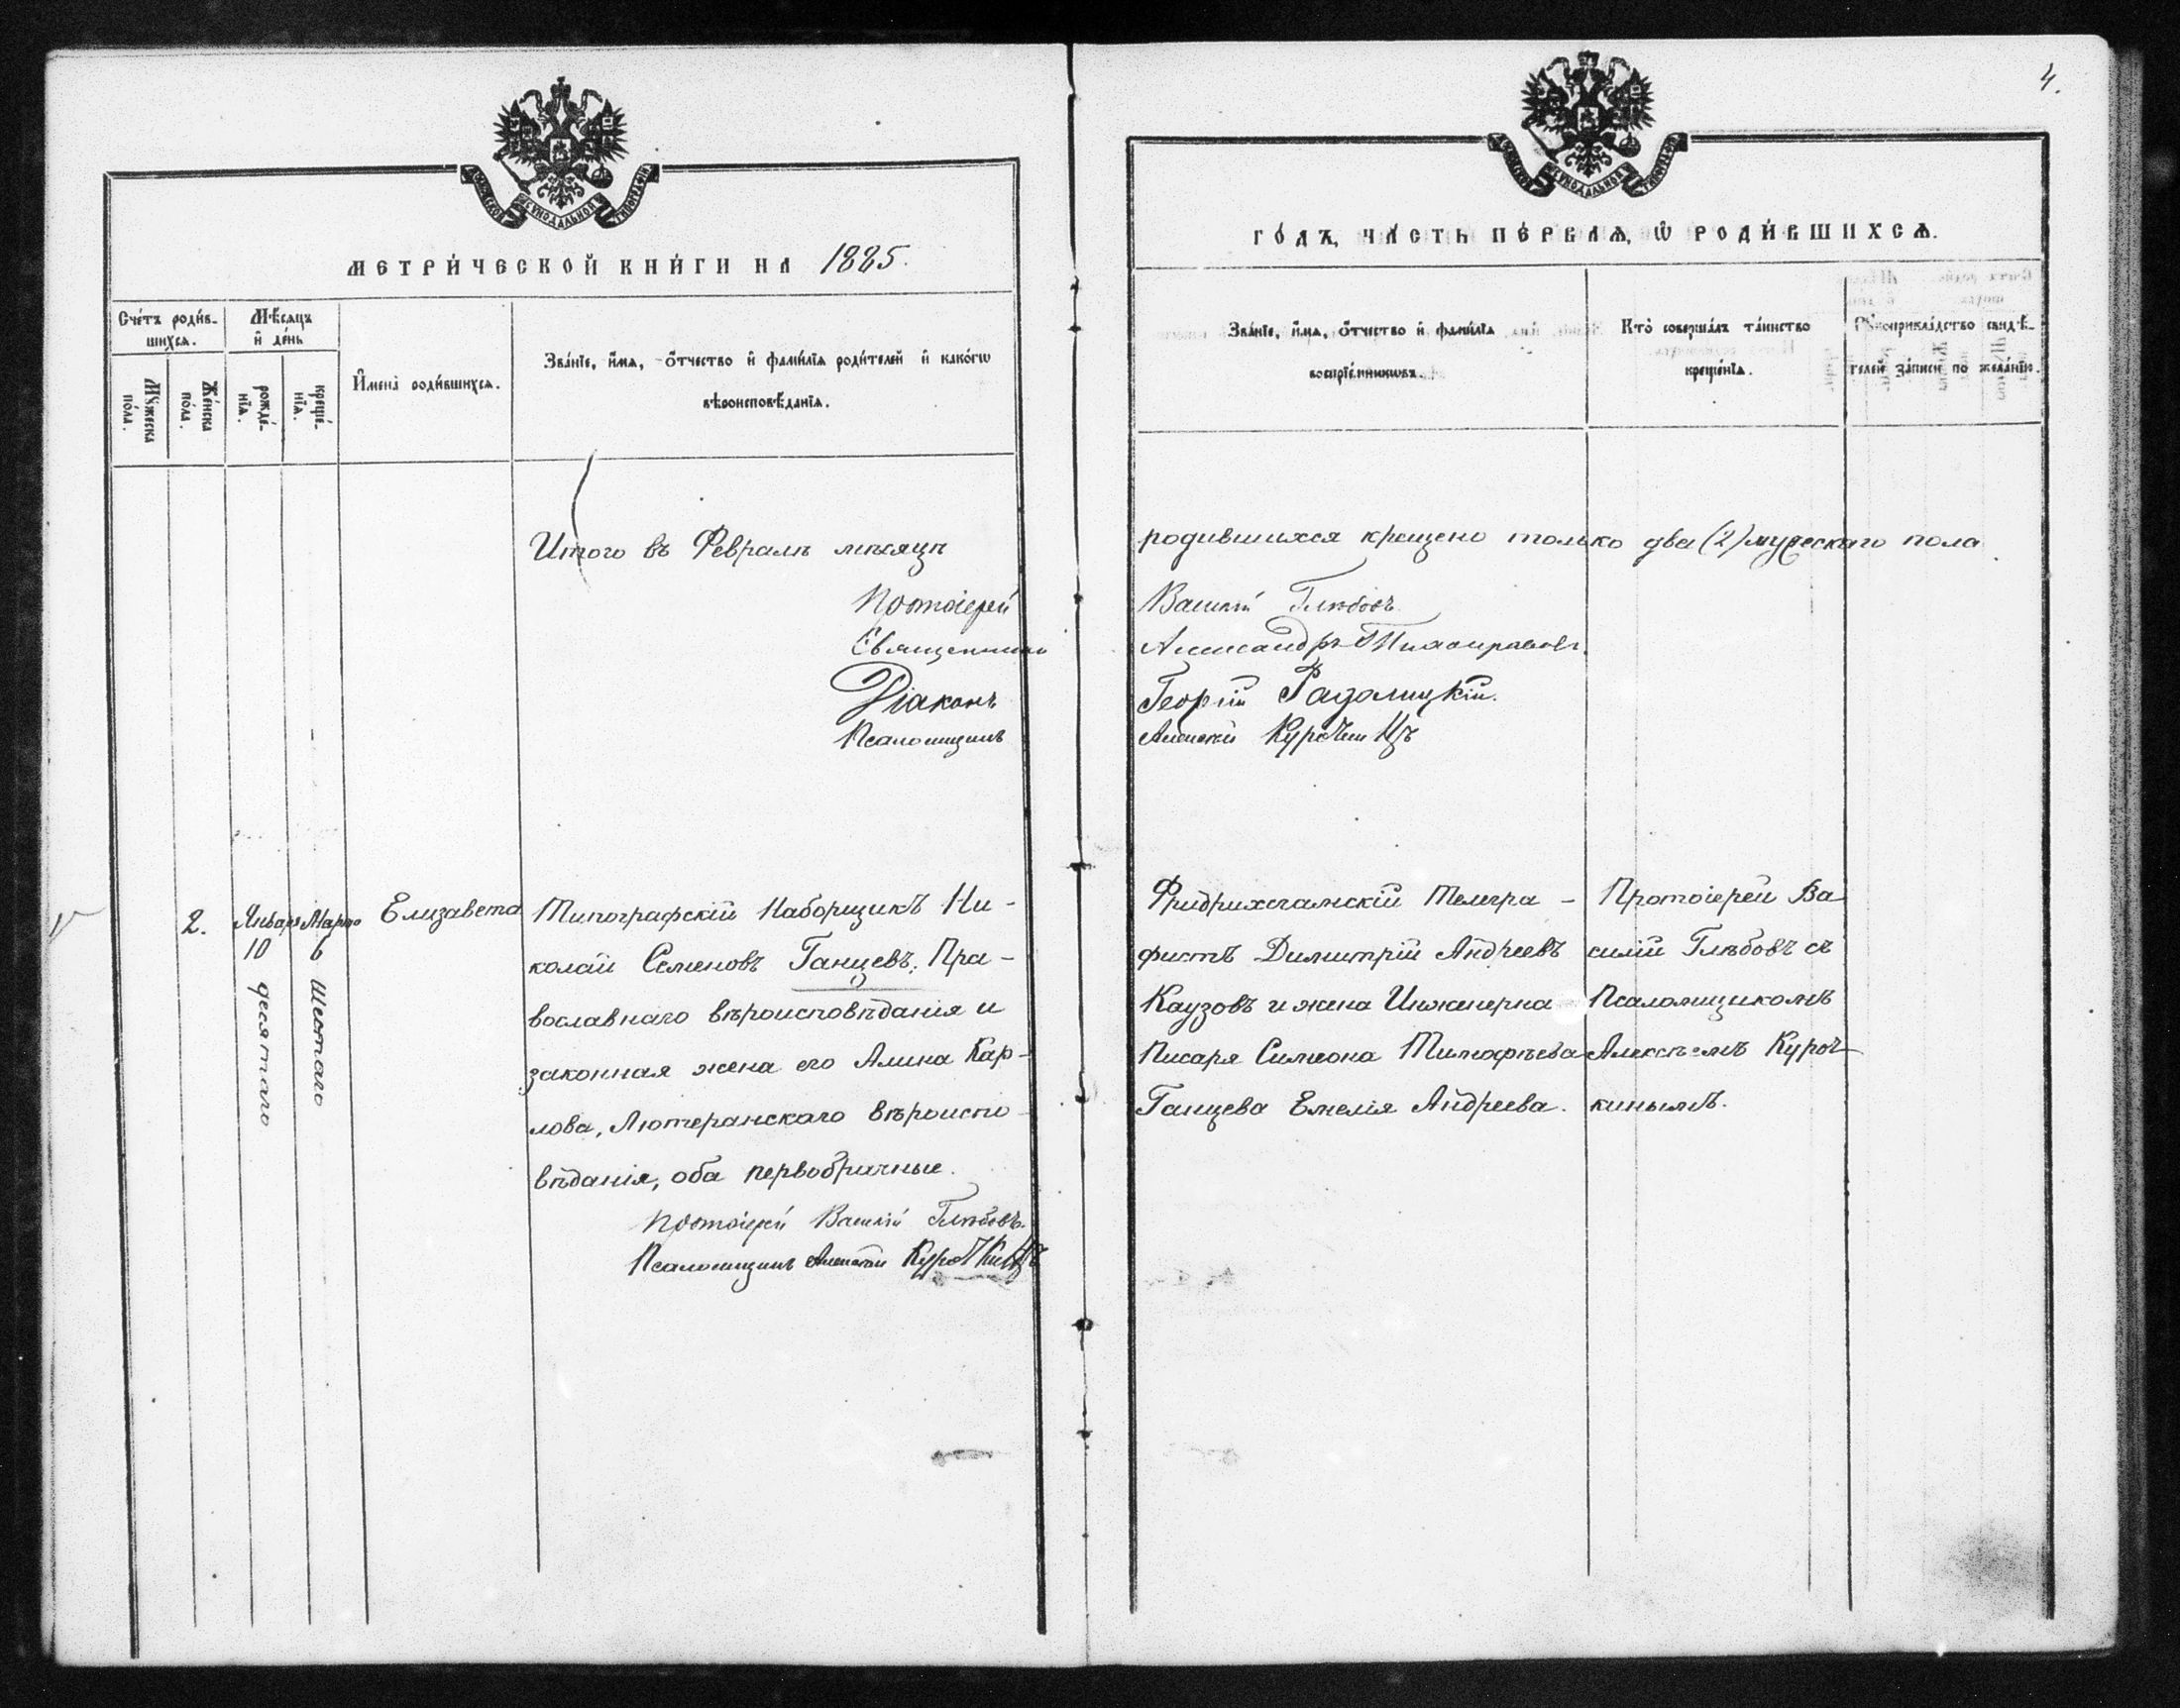 4.
МЕТРИ́ЧЕСКОЙ КНИ́ГИ НА 1885.
ГО́ДЪ, ЧА́СТЬ ПЕ́РВАѦ, Ѡ РОДИ́ВШИХСѦ.
Сче́тъ роди́в-
шихсѧ.
Мѣ́сѧцъ
и҆ де́нь
Мꙋ́жеска
по́ла.
Же́нска
по́ла.
рожде́-
нїѧ.
креще́-
нїѧ.
И҆мена̀ роди́вшихсѧ.
Зва́нїе, и҆́мѧ, ѻ҆́тчество и҆ фами́лїѧ роди́телей и҆ како́гѡ
вѣроисповѣ́данїѧ.
Зва́нїе, и҆́мѧ, ѻ҆́тчество и҆ фами́лїѧ
воспрїе́мникѡвъ.
Кто̀ соверша́лъ та́инство
креще́нїѧ.
Рꙋкоприкла́дство свидѣ́-
телей за́писи по жела́нїю.
Итого въ Февралѣ мѣсяцѣ
родившихся крещено только два (2) мужескаго пола
Протоіерей
Василій Глѣбовъ
Священникъ
Александръ
Діаконъ
Георгій Радолицкій.
Псаломщикъ
Алексѣй Курочкинъ
2.
Января
10
десятаго
Марта
6
Шестаго
Елизавета
Типографскій Наборщикъ Ни-
колай Семеновъ Ганцевъ, Пра-
вославнаго вѣроисповѣданія и
законная жена его Алина Кар-
лова, Лютеранскаго вѣроиспо-
вѣданія, оба первобрачные.
Протоіерей Василій Глѣбовъ.
Псаломщикъ Алексѣй Курочкинъ
Фридрихсгамскій Телегра-
фистъ Димитрій Андреевъ
Каузовъ и жена Инженерна
Писаря Симеона Тимофѣева
Ганцева Емелія Андреева.
Протоіерей Ва
силій Глѣбовъ съ
Псаломщикомъ
Алексѣемъ Куроч-
кинымъ.